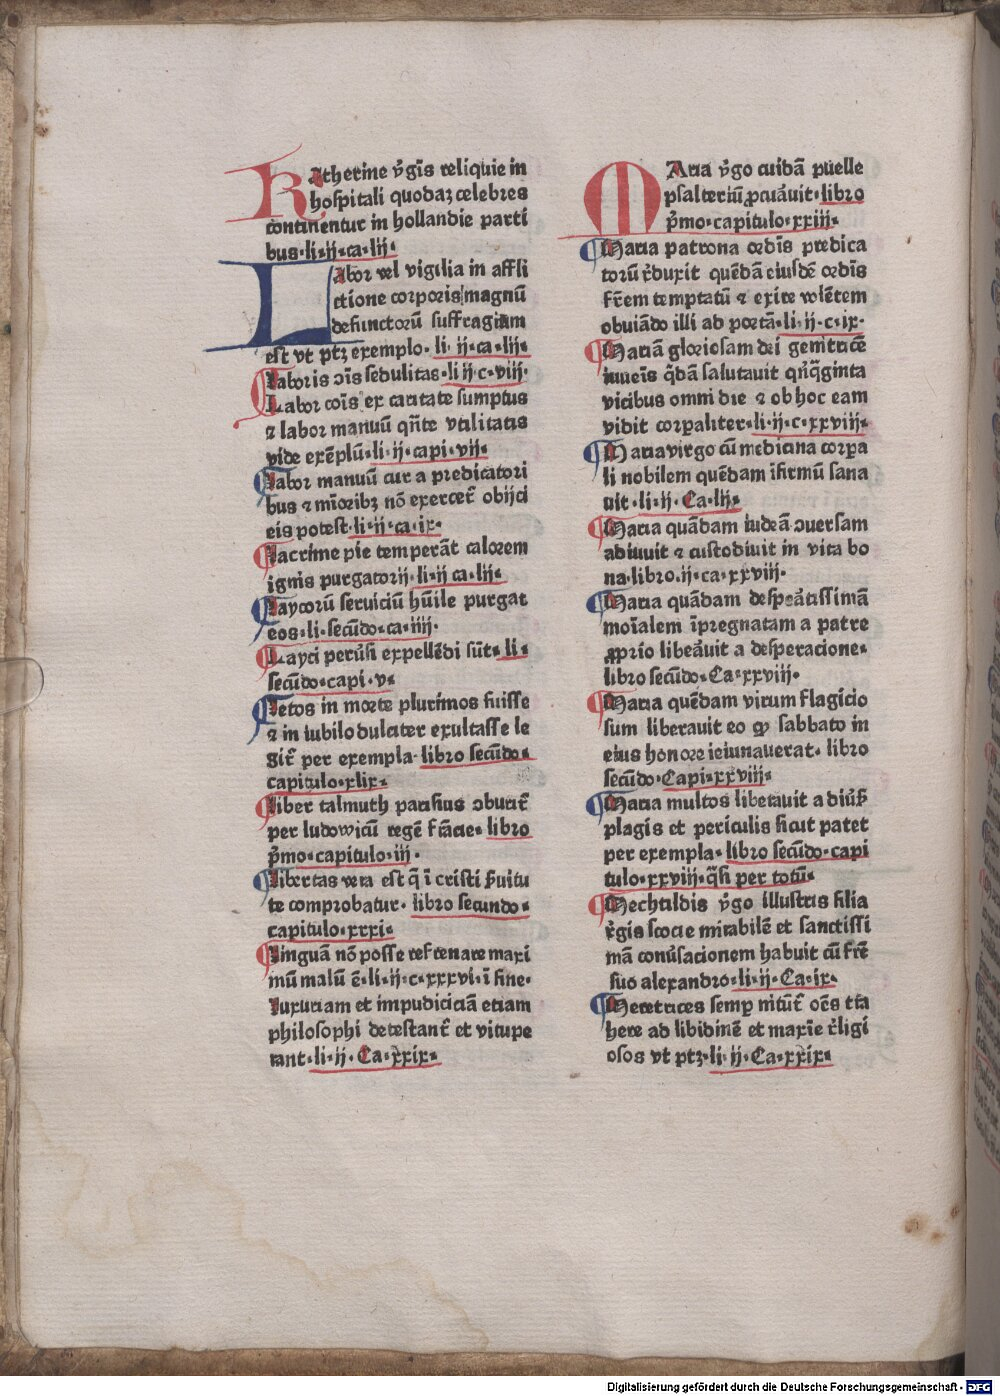 KAtherine v̄gīs reliquie in
hospitali quodaʒ celebres
continentur in hollandie parti
bus·li·ij·ca·lij·
LAbor vel vigilia in affli
ctione corporis magnū
defunctorū suffragium
est vt ptʒ exemplo· li· ij·ca·liij·
Laboris ɔīs sedulitas·li ij·c·viij·
Labor cōis ex caritate sumptus
⁊ labor manuū qn̄te vtilitatis
vide exēplū·li·ij·capi·vij·
Labor manuū cur a predicatori
bus ⁊ mīoribʒ nō exercet̄ obijci
eis potest·li·ij·ca·ix·
Lacrime pie temperāt calorem
ignis purgatorij·li·ij ca·lij·
Laycorū seruiciū hūile purgat
eos·li·secūdo·ca·iiij·
Layci peruˢsi expellēdi sūt·li·
secūdo·capi·v·
Letos in morte plurimos fuisse
⁊ in iubilo dulciter exultasse le
git̄ per exempla·libro secūdo·
capitulo·xlix·
Liber talmuth parisius ɔburit̄
per ludowicū regē frācie·libro
p̄mo·capitulo·iij·
Libertas vera est q̄ ī cristi ẜuitu
te comprobatur· libro secundo·
capitulo·xxxi·
Linguā nō posse refrenare maxi
mū malū ē·li·ij·c·xxxvi·ī fine·
Luxuriam et impudiciciā etiam
philosophi detestant̄ et vitupe
rant·li·ij· Ca·xxix·
MAria v̄go cuidā puelle
psalteriū ꝓcurāuit·libro
p̄mo·capitulo·xxiij·
Maria patrona ordīs predica
torū r̄duxit quēdā eiusdē ordīs
fr̄em temptatū ⁊ exire volētem
obuiādo illi ad portā·li·ij·c·ix·
Mariā gloriosam dei genitricē
iuueīs q̄dā salutauit qn̄q̄ginta
vicibus omni die ⁊ ob hoc eam
vidit corꝑaliter·li·ij·c·xxviij·
Maria virgo cū medicina corꝑa
li nobilem quēdam īfirmū sana
uit·li·ij· Ca·lij·
Maria quādam iudeā ɔuersam
adiuuit ⁊ custodiuit in vita bo
na·libro·ij·ca·xxviij·
Maria quādam despeātissimā
moīalem īpregnatam a patre
ꝓprio libeāuit a desperacione·
libro secūdo·Ca·xxviij·
Maria quēdam virum flagicio
sum liberauit eo ꝙ sabbato in
eius honore ieiunauerat· libro
secūdo·Capi·xxviij·
Maria multos liberauit a diuˢẜ
plagis et periculis sicut patet
per exempla·libro secūdo·capi
tulo·xxviij·q̄si per totū·
Mechtildis v̄go illustris filia
r̄gis scocie mirabilē et sanctissi
mā conuˢsacionem habuit cū fr̄e
suo alexandro·li·ij·Ca·ix·
Meretrices semꝑ nitūt̄ oēs tr̄a
here ad libidinē et maxīe r̄ligi
osos vt ptʒ·li·ij·Ca·xxix·
Digitalisierung gefördert durch die Deutsche Forschungsgemeinschaft - DFG